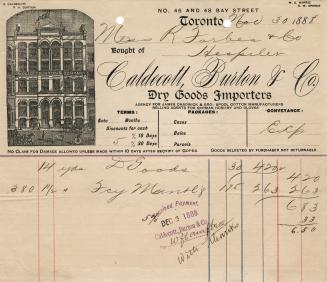 B. CALDECOTT.
P. H. BURTON
W. C. HARRIS.
R. W. SPENCE
NO. 46 AND 48 BAY STREET
Toronto Nov 30 1888
Mess R. Forbes & Co
Hespeler
Bought of
Caldecott, Burton & Co.
Dry Goods Importers
AGENCY FOR JAMES CHADWICK & BRO. SPOOL COTTON MANUFACTURERS
SELLING AGENTS FOR GERMAN HOSIERY AND GLOVES
TERMS: PACKAGES: CONVEYANCE:
Date Months Cases
Discounts for cash Bales
% 10 Days
5 % 30 Days Parcels
NO CLAIM FOR DAMAGE ALLOWED UNLESS MADE WITHIN 10 DAYS AFTER RECEIPT OF GOODS. GOODS SELECTED BY PURCHASER NOT RETURNABLE
14 yds D Goods 30 420 420
380 1/2 Fcy Mantle 175 263 263
683
33
6.50
Received Payment,
DEC 3 1888
Caldecott, Burton & Co.
With thanks